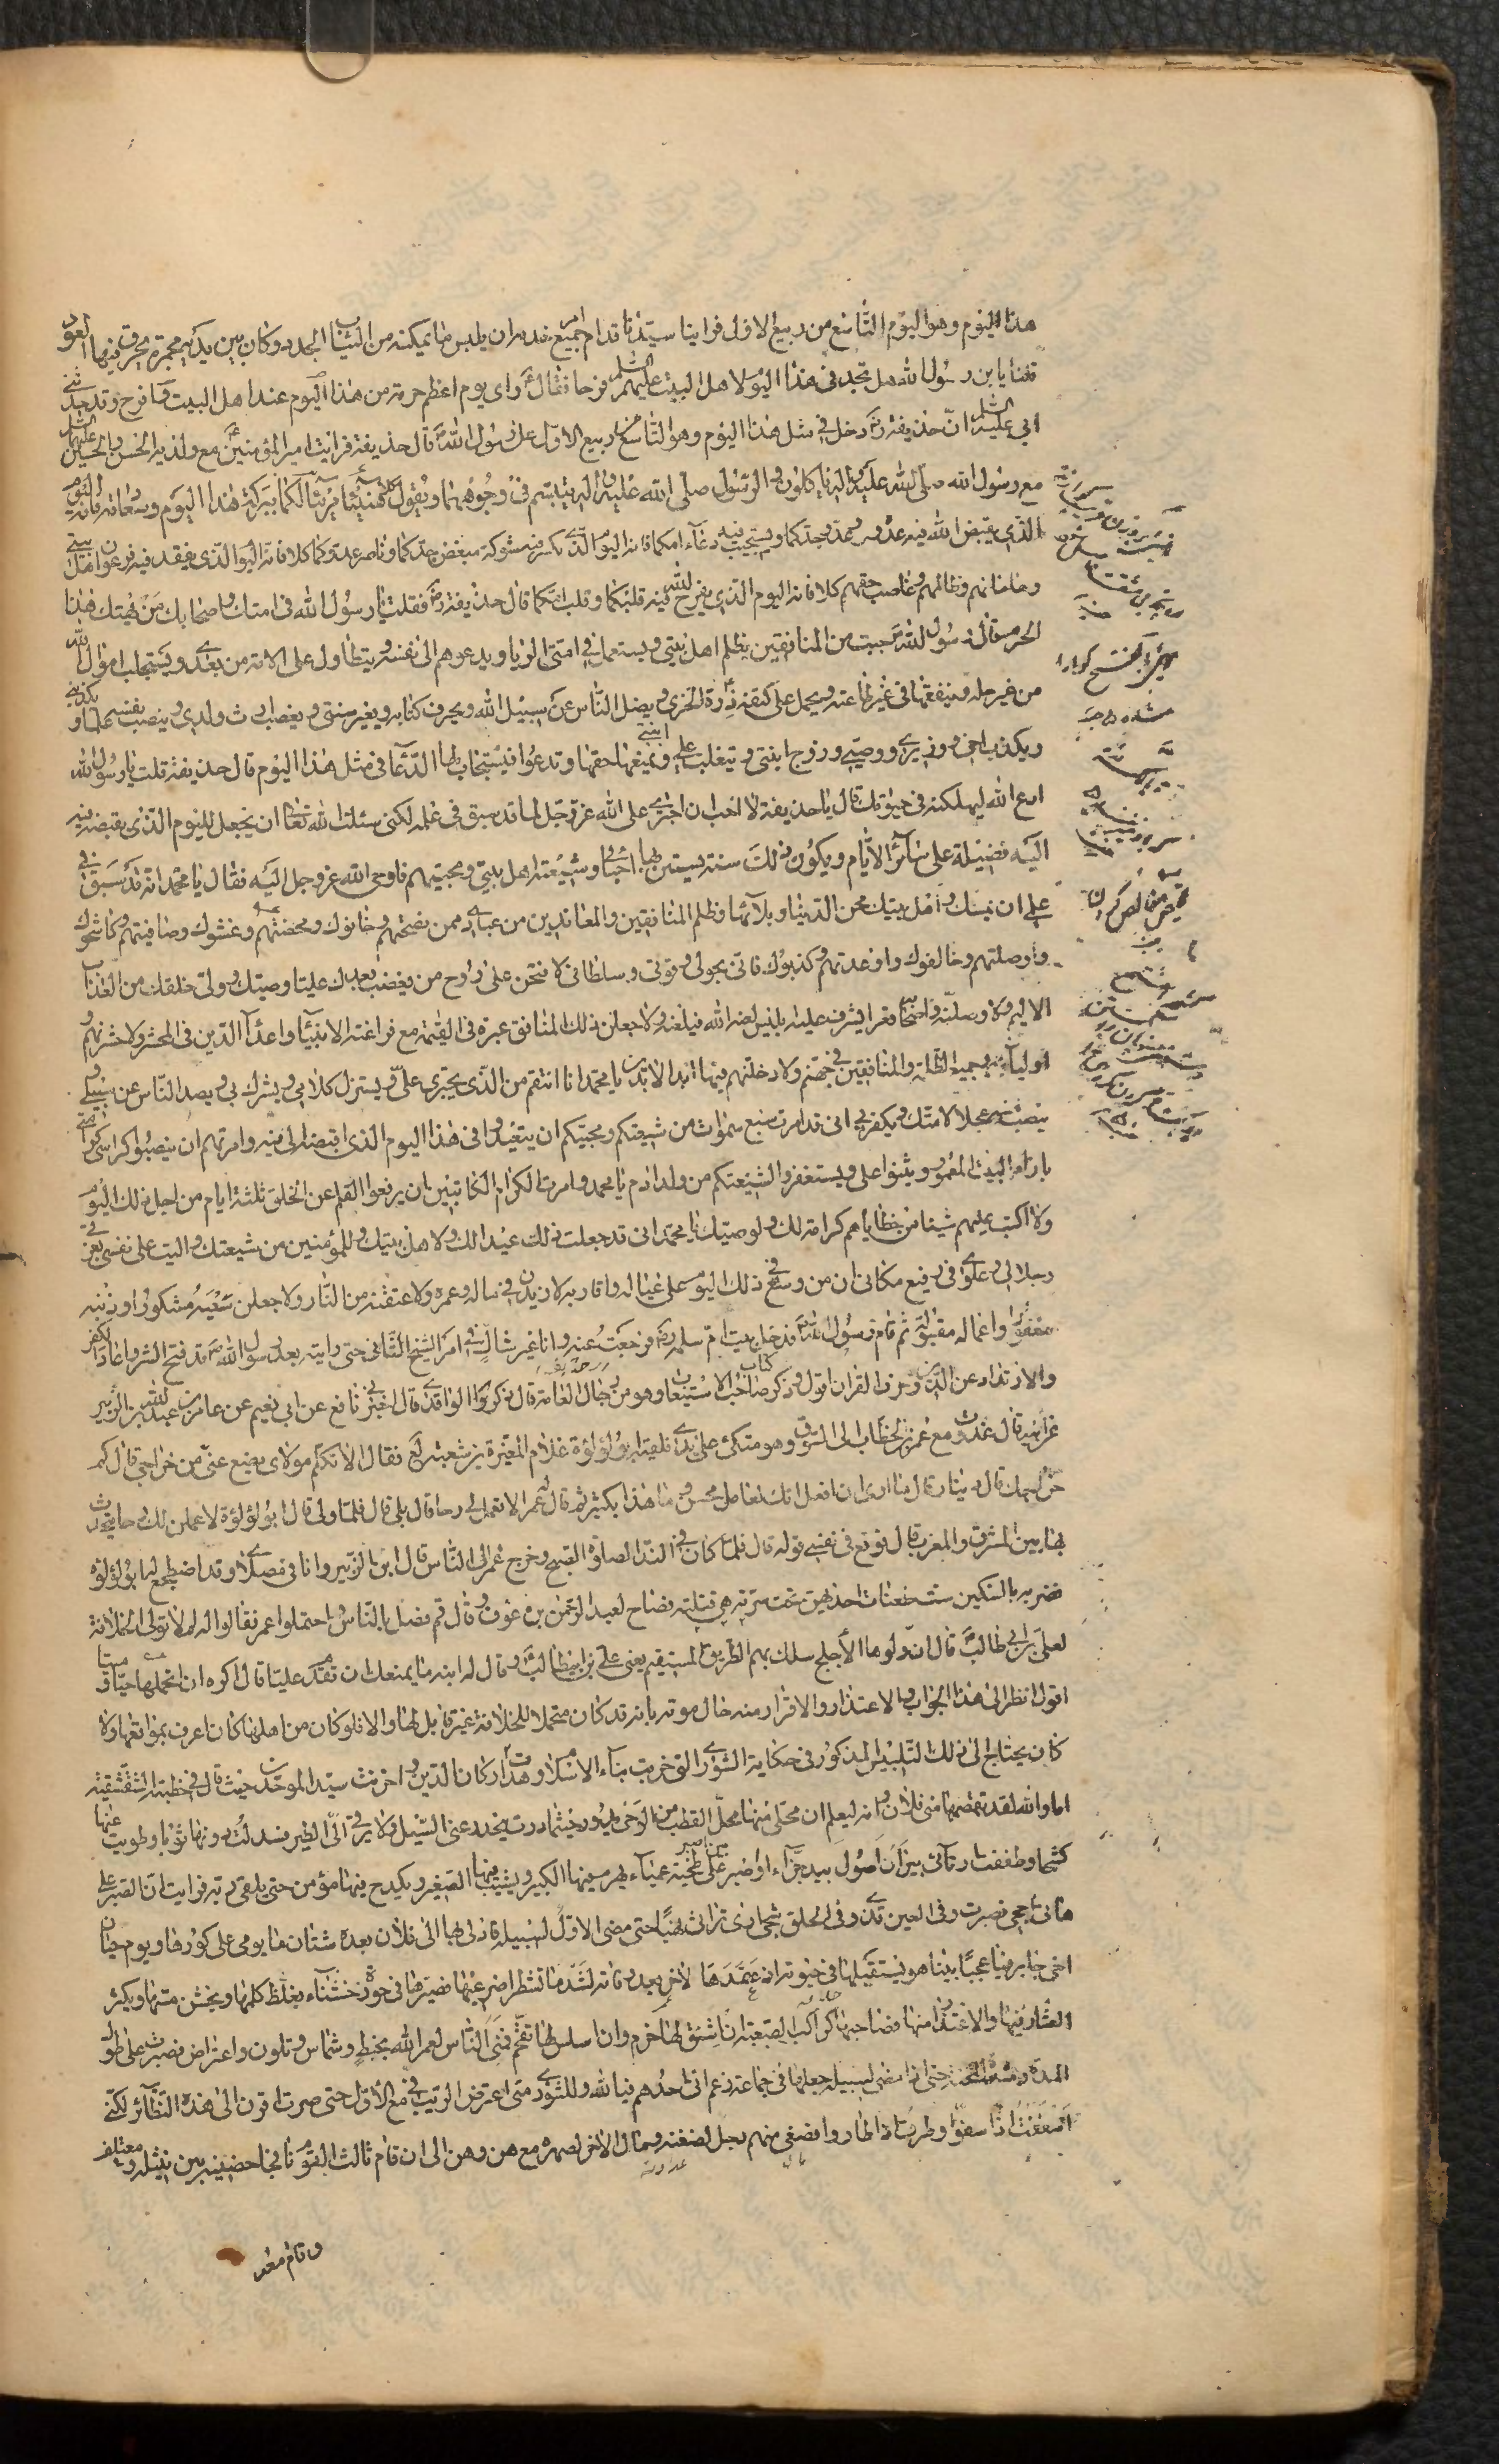 هذا اليوم وهو اليوم التاسع من ربيع الاول فراينا سيدنا قد امر جميع خدمه ان يلبس ما يمكنه من الثياب الجدد وكان بين يديه مجمرة يحرق فيها العود
قلنا يا بن رسول الله هل تجد في هذا اليوم لاهل البيت عليهم السلم فرحا فقال واي يوم اعظم حرمة من هذا اليوم عند اهل البيت وافرح وقد حدثني
ابي عليه السلم ان حذيفة دخل في مثل هذا اليوم وهو التاسع من ربيع الاول على رسول الله قال حذيفة فرايت امير المؤمنين مع ولديه الحسن والحسين عليهما السلم
مع رسول الله صلى الله عليه واله ياكلون والرسول صلى الله عليه واله يتبسم في وجوههما ويقول كلا هنيئا مريئا لكما ببركة هذا اليوم وسعادته فانه اليوم
الذي يقبض الله فيه عدوه وعدو جدكما ويستجيب فيه دعاء امكما فانه اليوم الذي يكسر فيه شوكة مبغض جدكما وناصر عدوكما كلا فانه اليوم الذي يفقد فيه فرعون اهل بيتي
وهامانهم وظالمهم وغاصب حقهم كلا فانه اليوم الذي يفرح الله فيه قلبكما وقلب امكما قال حذيفة فقلت يا رسول الله في امتك واصحابك من يهتك هذا
الحرم قال رسول الله جبت من المنافقين يظلم اهل بيتي ويستعمل في امتي الربا ويدعوهم الى نفسه ويتطاول على الامة من بعدي ويستجلب اموال الله
من غير حله وينفقها في غير طاعته ويحمل على كتفه درة الخزي ويضل الناس عن سبيل الله ويحرف كتابه ويغير سنتي ويغصب ارث ولدي وينصب نفسه علما ويكذبني
ويكذب اخي ووزيري ووصيي وزوج ابنتي ويتغلب على ابنتي ويمنعها حقها وتدعوا فيستجاب لها الدعا في مثل هذا اليوم قال حذيفة قلت يا رسول الله
ادع الله ليهلكنه في حيوتك قال يا حذيفة لا احب ان اجتري على الله عز وجل لما قد سبق في علمه لكني سئلت الله تعالى ان يجعل لليوم الذي يقبضه فيه
اليه فضيلة على سائر الايام ويكون ذلك سنة يستن بها احبائي وشيعة اهل بيتي ومحبيهم فاوحى الله عز وجل اليه فقال يا محمد انه قد سبق في
علمي ان يمسك واهل بيتك محن الدنيا وبلائها وظلم المنافقين والمعاندين من عبادي ممن نصحتهم وخانوك ومحضتهم وغشوك وصافيتهم وكاشحوك
واوصلتهم وخالفوك واوعدتهم وكذبوك فاني بحولي وقوتي وسلطاني لافتحن على روح من يغضب بعدك عليا وصيتك وولي خلقك من العذاب
الاليم ولاوصلنه واصحابه قعرا يشرف عليه ابليس لعنه الله فيلعنه ولاجعلن ذلك المنافق عبرة في القيمة مع فراعنة الانبياء واعداء الدين في المحشر ولاحشرنهم و
اولياءهم وجميع الظلمة والمنافقين في جهنم ولادخلنهم فيها ابد الابدين يا محمد انا انتقم من الذي يجتري علي ويستزل كلامي ويشرك بي ويصد الناس عن سبيلي و
ينصب نفسه عجلا لامتك ويكفر بي اني قد امرت سبع سموات من شيعتكم ومحبيكم ان يتعيدوا في هذا اليوم الذي اقبضه الي فيه وامرتهم ان ينصبوا كراسي كرامتي
بازاء البيت المعمور ويثنوا علي ويستغفروا لشيعتكم من ولد ادم يا محمد وامرت الكرام الكاتبين ان يرفعوا القلم عن الخلق ثلثة ايام من اجل ذلك اليوم
ولا اكتب عليهم شيئا من خطاياهم كرامة لك ولوصيك يا محمد اني قد جعلت ذلك عيدا لك ولاهل بيتك وللمؤمنين من شيعتك واليت على نفسي بعزتي
وجلالي وعلوي في رفيع مكاني ان من وسع في ذلك اليوم على عياله واقاربه لازيدن في ماله وعمره ولاعتقنه من النار ولاجعلن سعيه مشكورا وذنبه
مغفورا واعماله مقبولة ثم قام رسول الله فدخل بيت ام سلمة فرجعت عنه وانا غير شاك في امر الشيخ الثاني حتى رايته بعد رسول الله قد فتح الشر واعاد الكفر
والارتداد عن الدين وحرف القران اقول وذكر صاحب كتاب الاستيعاب وهو من رجال العامة قال ذكر الواقدي قال اخبرني نافع عن ابي نعيم عن عامر بن عبد الله بن الزبير
عن ابيه قال غدوت مع عمر بن الخطاب الى السوق وهو متكئ على يدي فلقيه ابو لؤلؤة غلام المغيرة بن شعبة فقال الا تكلم مولاي يضع عني من خراجي قال كم
خراجك قال دينار قال ما ارى ان افعل انك لعامل محسن وما هذا بكثير ثم قال له عمر الا تعمل لي رحا قال بلى قال فلما ولى قال ابو لؤلؤة لاعملن لك رحا يتحدث
بها بين المشرق والمغرب قال فوقع في نفسي قوله قال فلما كان في النداء لصلوة الصبح وخرج عمر الى الناس قال ابن الزبير وانا في مصلاي وقد اضطجع له ابو لؤلؤة
فضربه بالسكين ست طعنات احدهن تحت سرته هي قتلته فصاح لعبد الرحمن بن عوف وقال قم فصل بالناس واحتملوا عمر فقالوا له لم لا تولي الخلافة
لعلي بن ابي طالب قال ان ولوها الاجلح سلك بهم الطريق المستقيم يعني علي بن ابي طالب وقال له ابنه ما يمنعك ان تقدم عليا قال اكره ان اتحملها حيا وميتا
اقول انظر الى هذا الجواب والاعتذار والاقرار منه حال موته بانه قد كان متحملا للخلافة غير قابل لها والا فلو كان من اهلها كان اعرف بمواقعها ولا
كان يحتاج الى ذلك التلبيس المذكور في حكاية الشورى التي خربت بناء الاسلام وهدت اركان الدين واحزنت سيد الموحدين حيث قال في خطبته الشقشقية
اما والله لقد تقمصها مني فلان وانه ليعلم ان محلي منها محل القطب من الرحى ينحدر عني السيل ولا يرقى الي الطير فسدلت دونها ثوبا وطويت عنها
كشحا وطفقت ارتاي بين ان اصول بيد جذاء او اصبر على طخية عمياء يهرم فيها الكبير ويشيب فيها الصغير ويكدح فيها مؤمن حتى يلقى ربه فرايت ان الصبر على
هاتى احجى فصبرت وفي العين قذى وفي الحلق شجى ارى تراثي نهبا حتى مضى الاول لسبيله فادلى بها الى فلان بعده شتان ما يومي على كورها ويوم حيان
اخي جابر فيا عجبا بينا هو يستقيلها في حيوته اذ عقدها لاخر بعد وفاته لشد ما تشطرا ضرعيها فصيرها في حوزة خشناء يغلظ كلمها ويخشن مسها ويكثر
العثار فيها والاعتذار منها فصاحبها كراكب الصعبة ان اشنق لها خرم وان اسلس لها تقحم فمني الناس لعمر الله بخبط وشماس وتلون واعتراض فصبرت على طول
المدة وشدة المحنة حتى اذا مضى لسبيله جعلها في جماعة زعم اني احدهم فيا لله وللشورى متى اعترض الريب في مع الاول حتى صرت اقرن الى هذه النظائر لكني
اسففت اذ اسفوا وطرت اذ طاروا فصغى منهم رجل لضغنه ومال الاخر لصهره مع هن وهن الى ان قام ثالث القوم نافجا حضنيه بين نثيله ومعتلفه
وقام معه